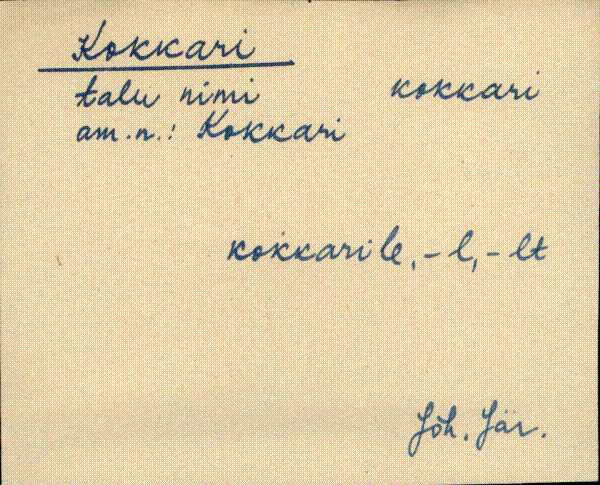 Kokkari
talu nimi kokkari
am.n.: Kokkari
kokkarile, -l, -lt
Jõh. Jär.